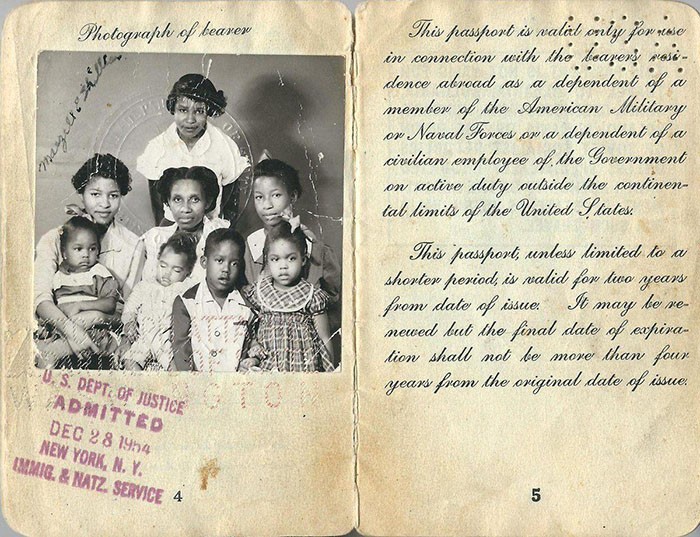 Photograph of bearer
U. S. DEPT. OF JUSTICE
ADMITTED
DEC 28 1954
NEW YORK, N. Y.
IMMIG. & NATZ. SERVICE
4
This passport is valid only for use
in connection with the bearers resi-
dence abroad as a dependent of a
member of the American Military
or Naval Forces or a dependent of a
civilian employee of the Government
on active duty outside the continen-
tal limits of the United States.
This passport, unless limited to a
shorter period, is valid for two years
from date of issue. It may be re-
newed but the final date of expira-
tion shall not be more than four
years from the original date of issue.
5